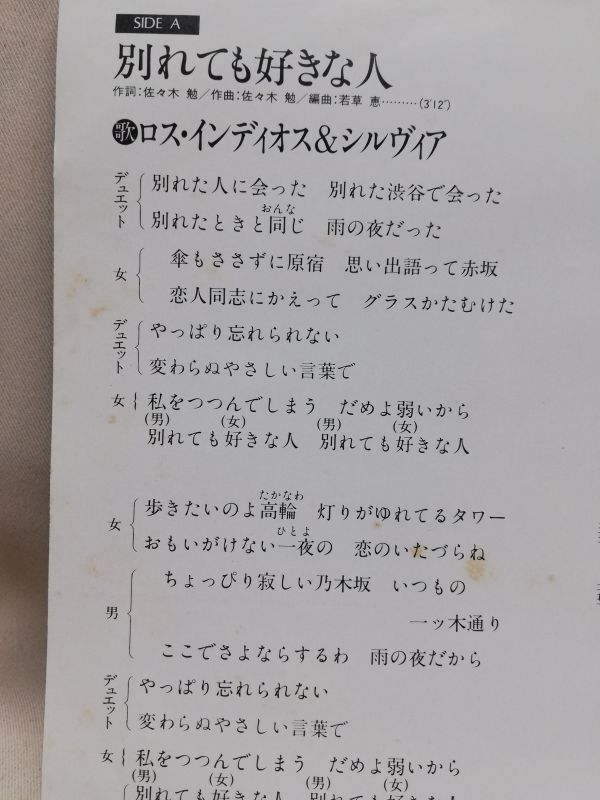 SIDE A
別れても好きな人
作詞:佐々木 勉/作曲:佐々木 勉/編曲:若草 恵………(3'12")
歌ロス・インディオス&シルヴィア
デュエット
別れた人に会った 別れた渋谷で会った
おんな
別れたときと同じ 雨の夜だった
女
傘もささずに原宿 思い出語って赤坂
恋人同志にかえって グラスかたむけた
デュエット
やっぱり忘れられない
変わらぬやさしい言葉で
女
私をつつんでしまう だめよ弱いから
(男) (女) (男) (女)
別れても好きな人 別れても好きな人
女
たかなわ
歩きたいのよ高輪 灯りがゆれてるタワー
ひとよ
おもいがけない一夜の 恋のいたづらね
男
ちょっぴり寂しい乃木坂 いつもの
一ッ木通り
ここでさよならするわ 雨の夜だから
デュエット
やっぱり忘れられない
変わらぬやさしい言葉で
女
私をつつんでしまう だめよ弱いから
(男) (女) (男) (女)
別れても好きな人 別れても好きな人